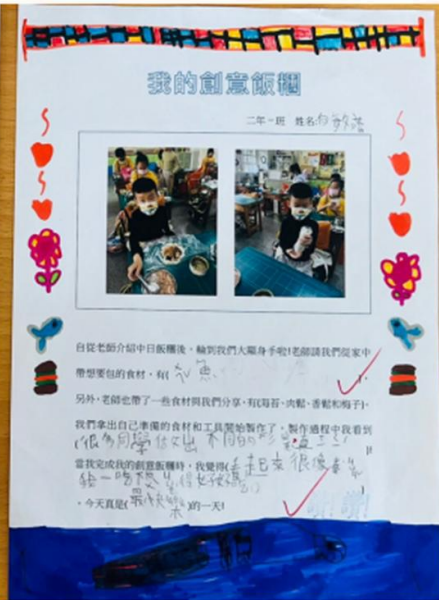 我的創意飯糰
二年一班 姓名:白
自從老師介紹中日飯糰後,輪到我們大顯身手啦!老師請我們從家中
帶想要包的食材,有( 魚
另外,老師也帶了一些食材與我們分享,有(海苔、肉鬆、香鬆和梅子)。
我們拿出自己準備的食材和工具開始製作了,製作過程中我看到
(很多同學做出不同的
當我完成我的創意飯糰時,我覺得(看起來很像
我一吃
。今天真是(最快樂)的一天!